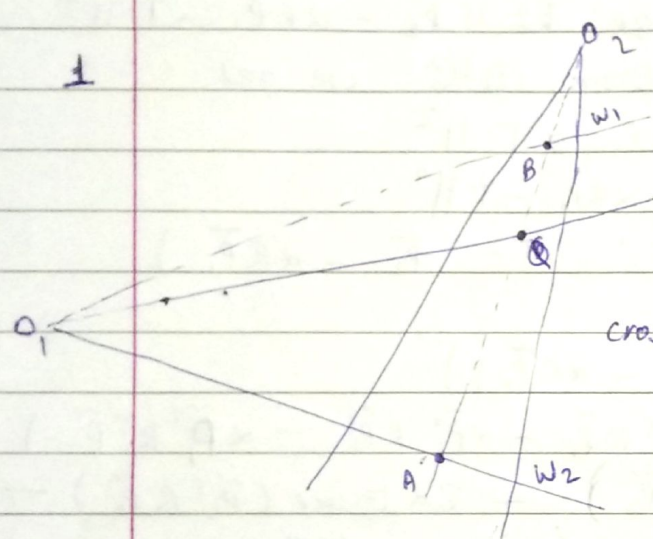 1
O2
W1
B
Q
O1
cros
A
W2